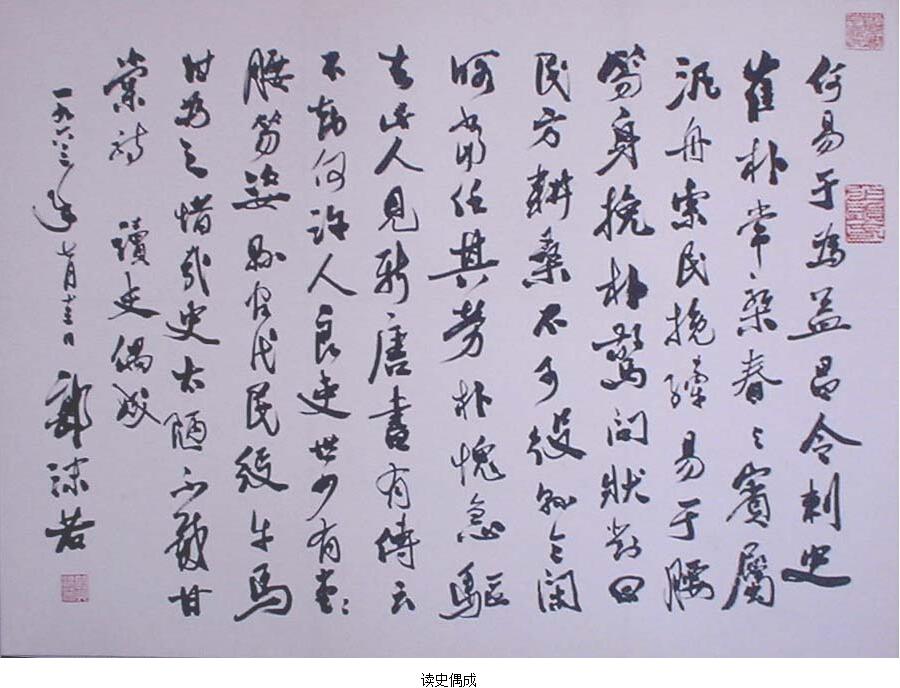 何易于為益昌令刺史
崔朴常乘春〻賓屬
汎舟索民挽繂易于腰
笏身挽朴驚问狀對曰
民方耕桑不可役縣令閑
暇當任其勞朴愧急驅
去此人見新唐書有傳云
不知何許人良吏世少有堂〻
腰笏姿躬自代民役牛馬
為之惜哉史太陋不載甘
棠詩 讀史偶成
一九六三年七月十三日 郭沫若
读史偶成